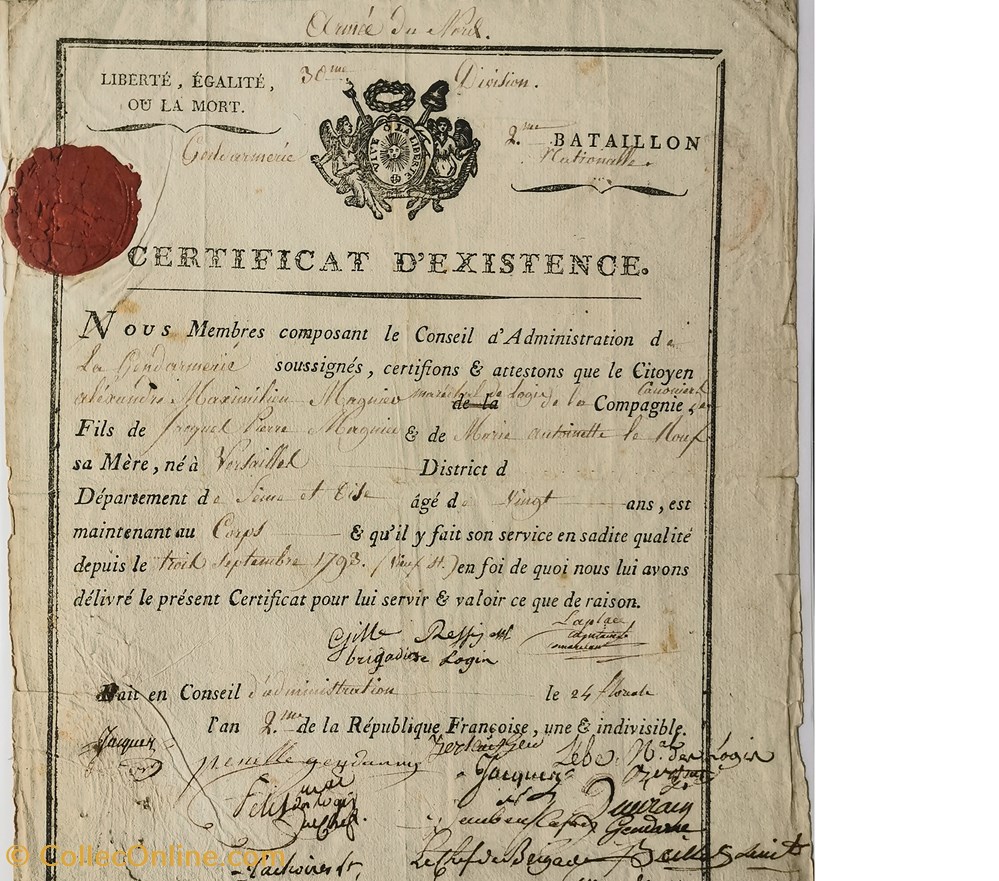 Armée du Nord.
LIBERTÉ, ÉGALITÉ,
OU LA MORT.
30me Division.
Gendarmerie
2.me BATAILLON
Nationalle.
VIVE LA LIBERTÉ
CERTIFICAT D'EXISTENCE.
Nous Membres composant le Conseil d'Administration de
La Gendarmerie soussignés, certifions & attestons que le Citoyen
aléxandre Maximilien Magnier maréchal de Logis de la Compagnie
Fils de Jacques Pierre Magnier & de Marie antoinette le
sa Mère, né à Versailles District d
Département de Seine et Oise âgé de Vingt ans, est
maintenant au Corps & qu'il y fait son service en sadite qualité
depuis le trois septembre 1793. (Vieux St.) en foi de quoi nous lui avons
délivré le présent Certificat pour lui servir & valoir ce que de raison.
Gille
brigadier Login
Laplace
capitaine
Fait en Conseil d'administration le 24 floréal
l'an 2.me de la République Françoise, une & indivisible.
Jacques
gendarme
Jacques
Gendarme
Le Chef de Brigade
© CollecOnline.com